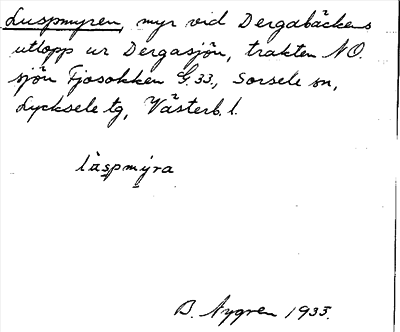 Luspmyren, myr vid Dergabäckens
utlopp ur Dergasjön, trakten NO.
sjön Fjosokken G.33., Sorsele sn,
Lycksele tg, Västerb. l.
lặspmýra
B. Nygren 1933.